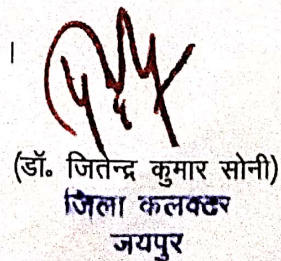 (डॉ० जितेन्द्र कुमार सोनी)
जिला कलक्टर
जयपुर